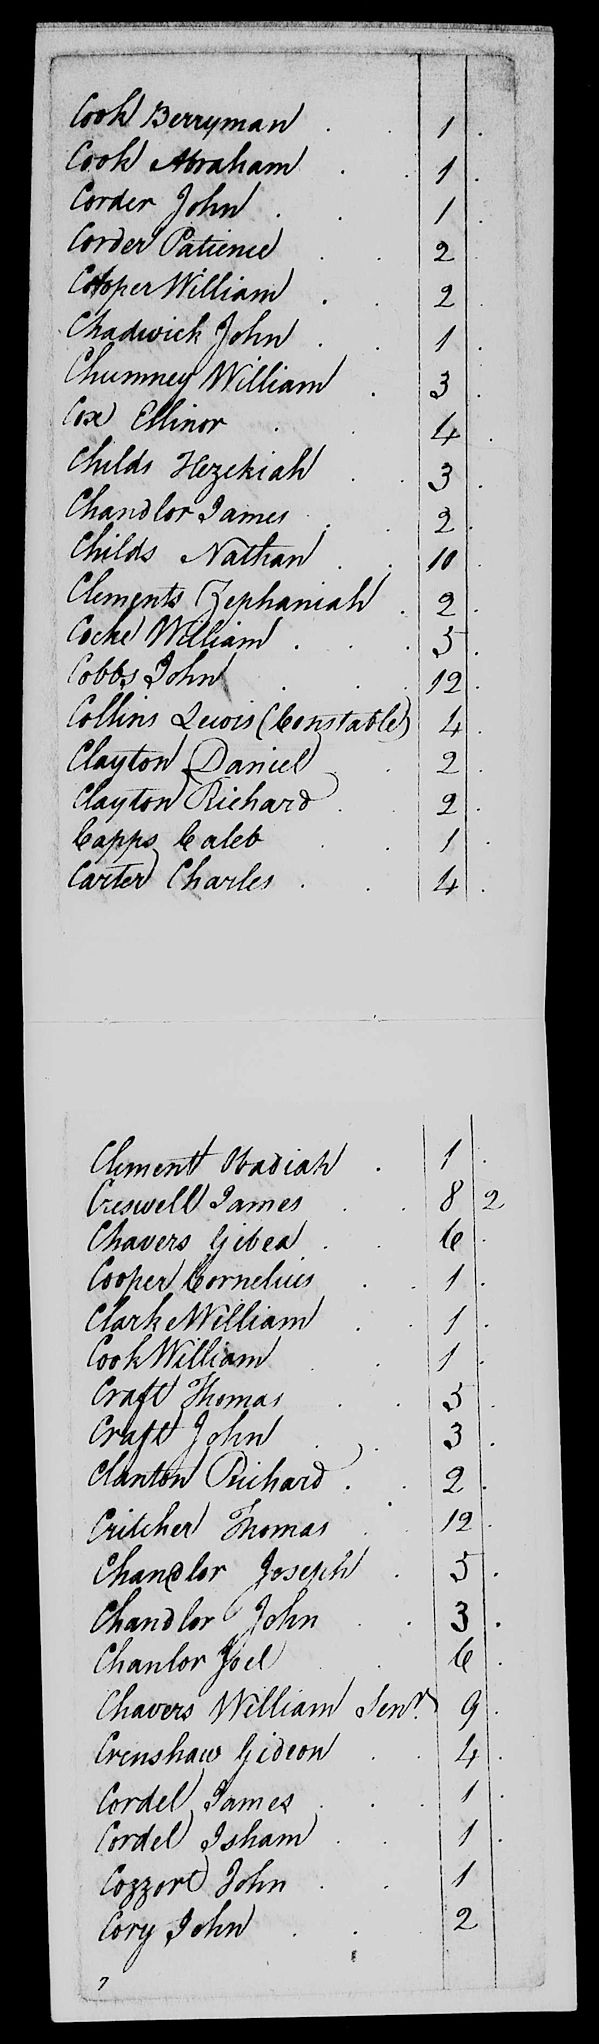 Cook Berryman . . 1 .
Cook Abraham . . 1 .
Corder John . . 1 .
Corder Patience . . 2 .
Cooper William . . 2 .
Chadwick John . . 1 .
Chumney William . 3 .
Cox Ellinor . . 4 .
Childs Hezekiah . . 3 .
Chandlor James . . 2 .
Childs Nathan . . 10 .
Clements Zephaniah . 2 .
Cocke William . . . 5 .
Cobbs John . . . 12 .
Collins Lewis (Constable) 4 .
Clayton Daniel . 2 .
Clayton Richard . . 2 .
Capps Caleb . . 1 .
Carter Charles . . 4 .
Clement Obadiah . 1 .
Creswell James . . 8 2
Chavers Gibea . . 6 .
Cooper Cornelius . . 1 .
Clark William . . 1 .
Cook William . . 1 .
Craft Thomas . . 5 .
Craft John . . 3 .
Clanton Richard . . 2 .
Critcher Thomas . . 12 .
Chandlor Joseph . 5 .
Chandlor John . . 3 .
Chanlor Joel . 6 .
Chavers William Senr. 9 .
Crenshaw Gideon . . 4 .
Cordel James . . . 1 .
Cordel Isham . . 1 .
Cozzort John . . 1
Cory John . . 2